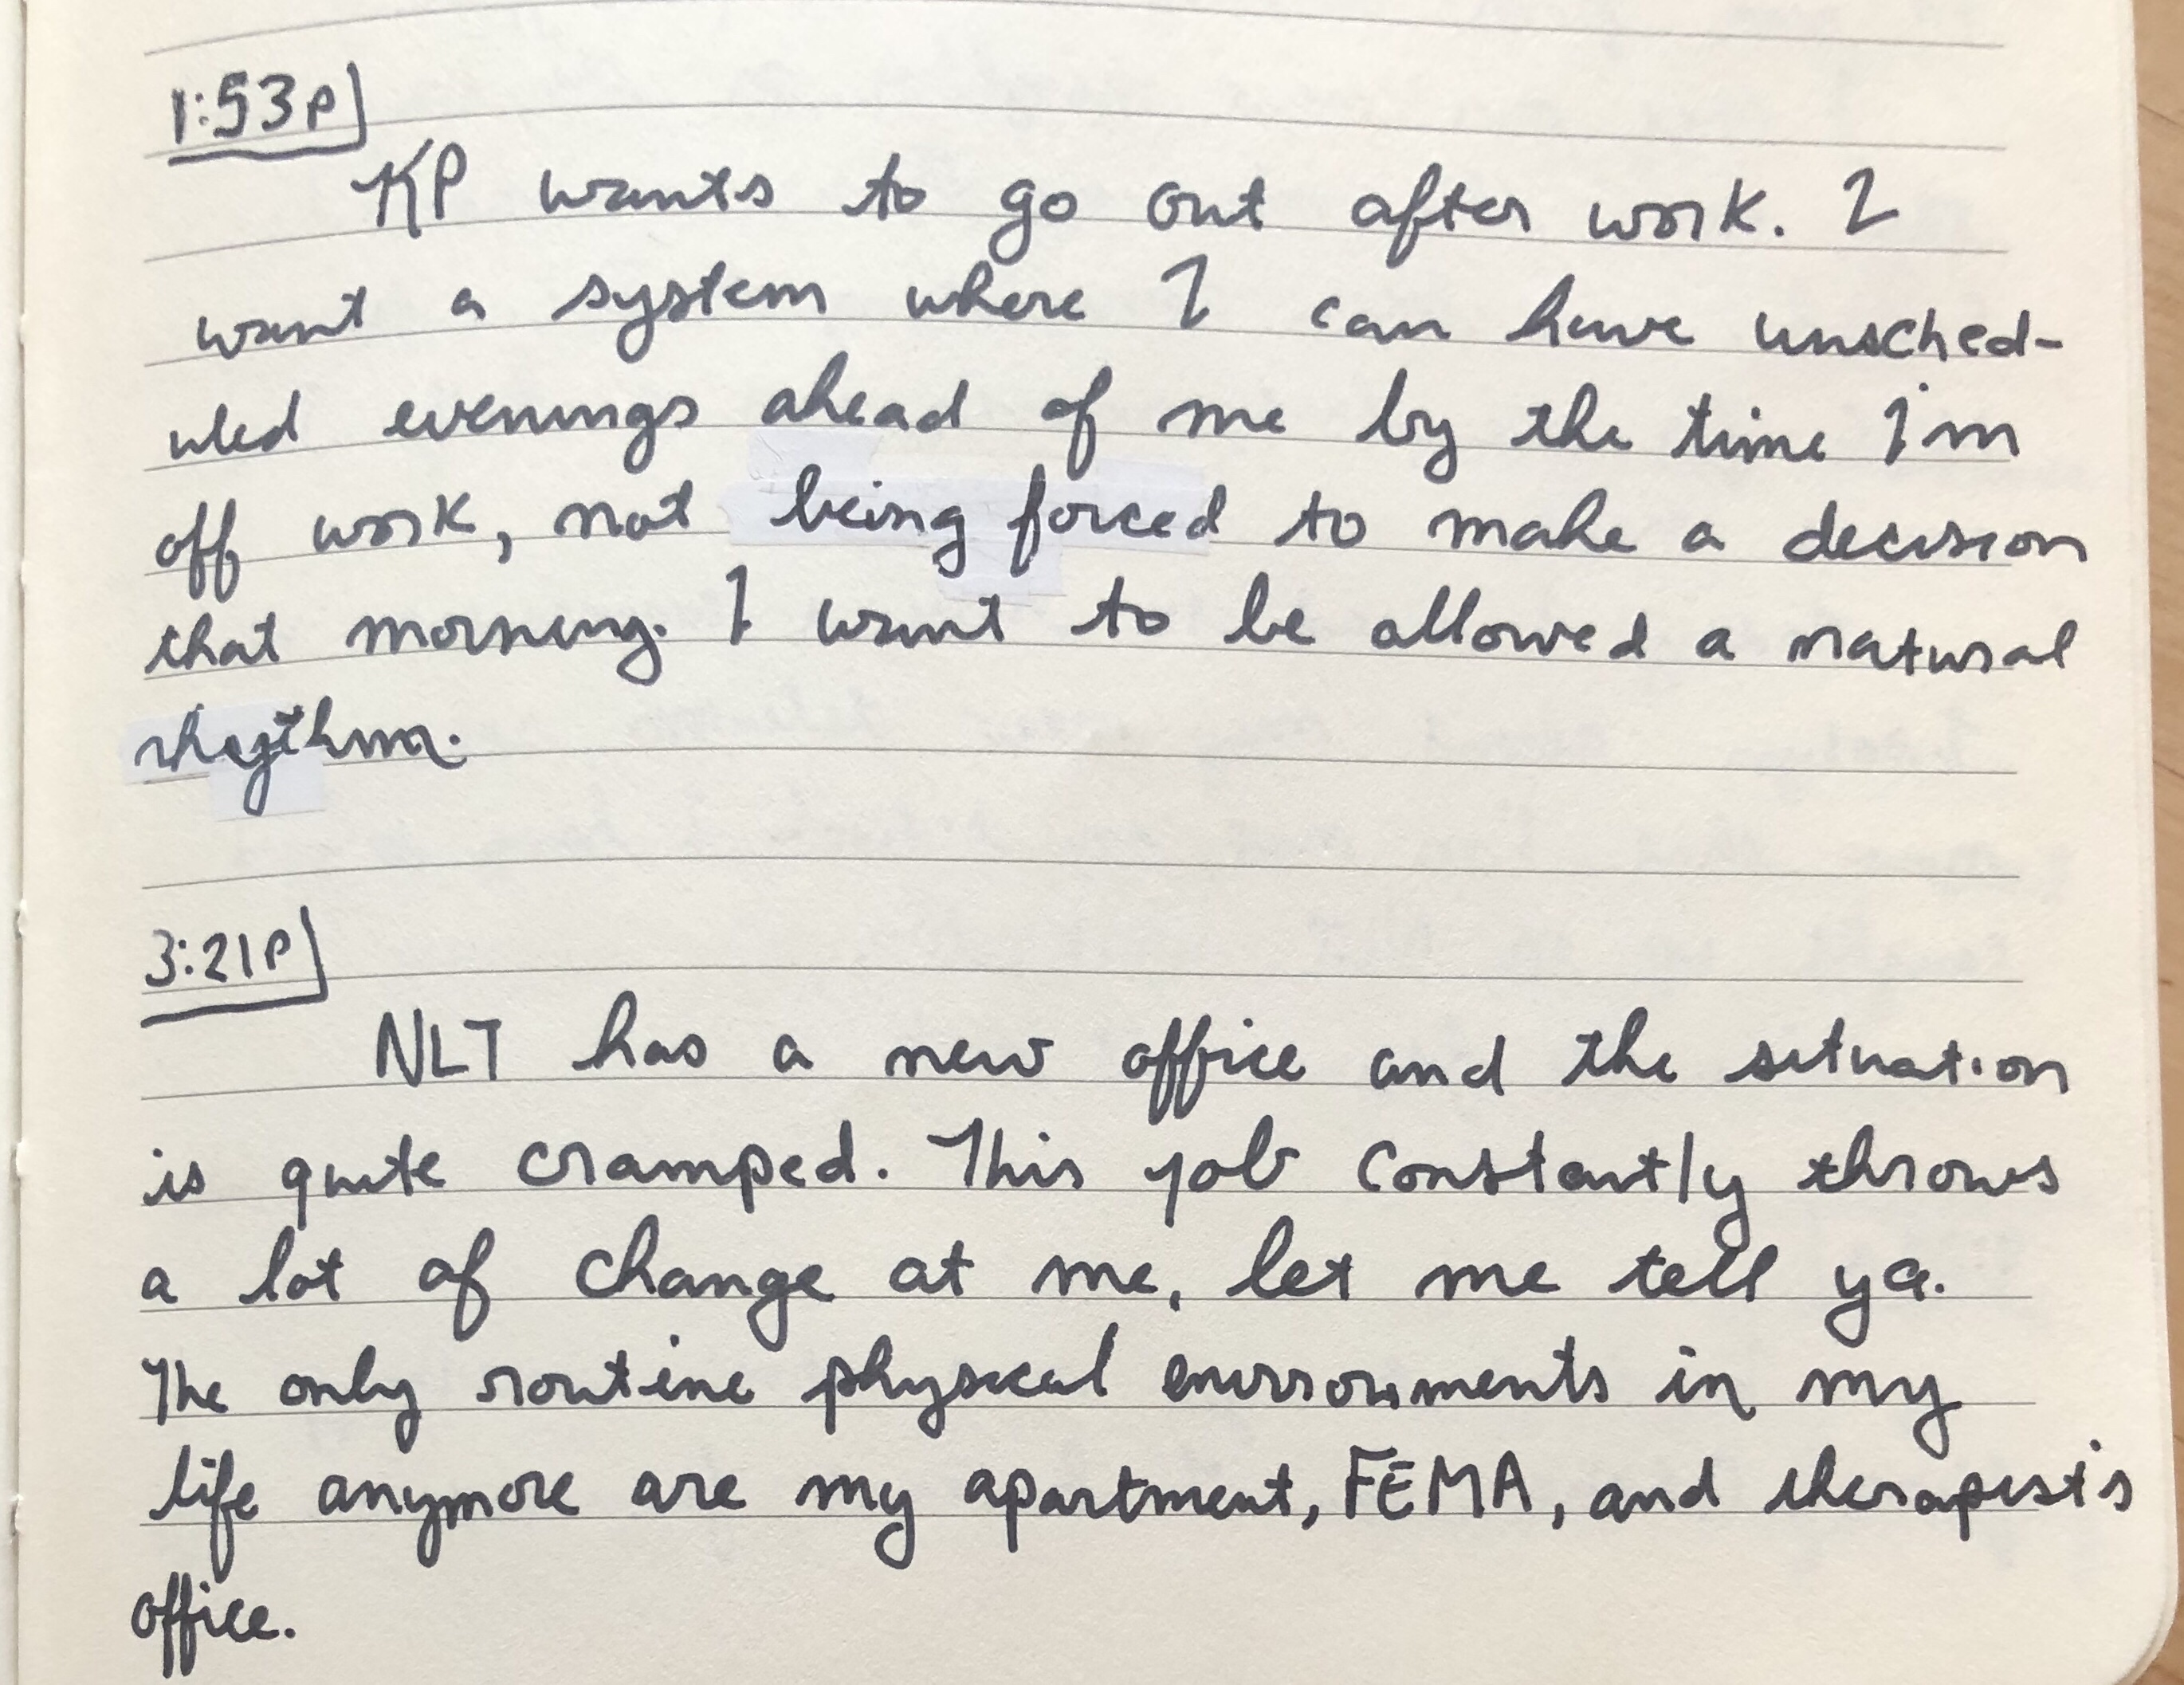 1:53P
KP wants to go out after work. I
want a system where I can have unsched-
uled evenings ahead of me by the time I'm
off work, not being forced to make a decision
that morning. I want to be allowed a natural
rhythm.
3:21P
NLT has a new office and the situation
is quite cramped. This job constantly throws
a lot of change at me, let me tell ya.
The only routine physical environments in my
life anymore are my apartment, FEMA, and therapist's
office.